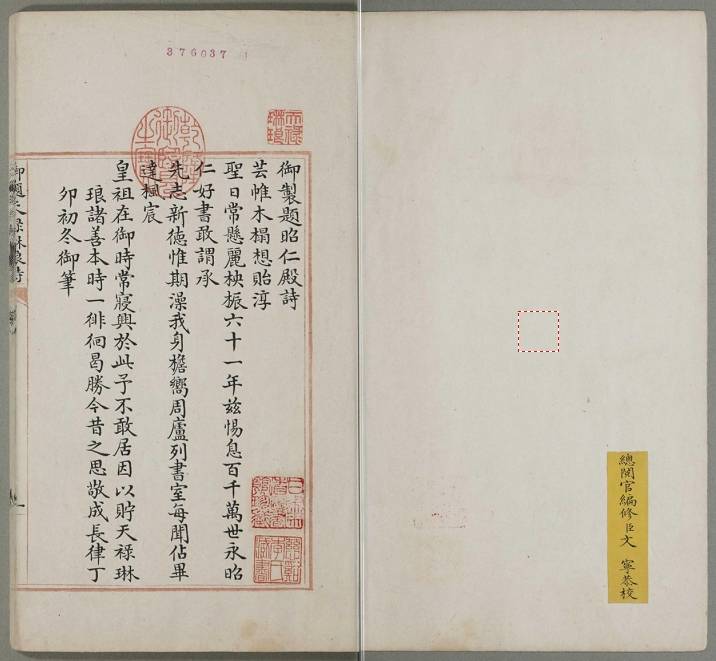 總閱官編修臣文 寧恭校
376037
御製題昭仁殿詩
芸帷木榻想貽淳
聖日常懸麗袂振六十一年茲惕息百千萬世永昭
仁好書敢謂承
先志新德惟期澡我身檐嚮周廬列書室每聞佔畢
達楓宸
皇祖在御時常寢興於此予不敢居因以貯天祿琳
琅諸善本時一徘徊曷勝今昔之思敬成長律丁
卯初冬御筆
天祿琳琅
御題天祿琳琅詩